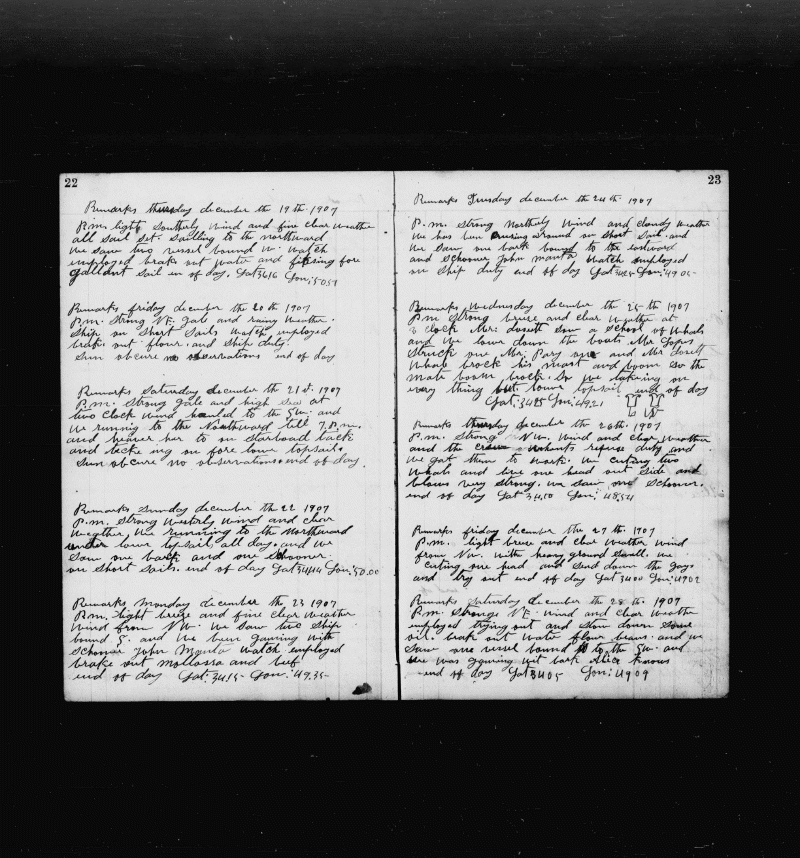 22
Remarks thursday december the 19th 1907
P.m. light Southerly Wind and fine clear Weather
all Sail Set. Sailling to the northward
We Saw two vessel bound W. Watch
employed brak out Water and fixsing fore
gallant Sail end of day. Lat: 3416 Lon: 5051
Remarks friday december the 20th 1907
P.m. Strong NE. Gale and rainy Weather.
Ship on Short Sails Watch employed
brak. out flour. and Ship duty.
Sun obcure no observations end of day
Remarks Saturday december the 21st. 1907
P.m. Strong gale and high Sea at
two Clock Wind hauled to the SW. and
We running to the Northward till 7.P.m.
and heaver her to on Starboard tack
and on fore lower topsails.
Sun obcure no observations end of day
Remarks Sunday december the 22 1907
P.m. Strong Westerly Wind and clear
Weather. We running to the Northward
under lower topsails all day. and We
Saw one bark and one Schooner.
on Short Sails. end of day Lat: 3444 Lon: 50.00
Remarks, Monday december the 23 1907
P.m. light breze and fine clear Weather
Wind from NW. We Saw two Ship
bound S. and We been gaming With
Schooner John Manta Watch employed
brake out mollassa and beef
end of day Lat: 3415 Lon: 49.35
23
Remarks Tuesday december the 24th 1907
P.m. Strong Northerly Wind and cloudy Weather
We has been crusing around on Short Sail. and
We Saw one bark bound to the eastward
and Schooner John Manta Watch employed
on Ship duty end of day Lat: 3425 Lon: 4905
Remarks Wednesday december the 25th 1907
P.m. Strong breze and clear Weather at
Clock Mr. dosett Saw a School of Whals
and We lower down the boats Mr Lopes
Struck one Mr. Pary one and Mr dosett
Whals brock his mast and boom So the
mate boom brock. So We takeing in
very thing but lower topsail end of day
Lat: 3425 Lon: 4921
Remarks thursday december the 26th. 1907
P.m. Strong NW. Wind and clear Weather
and the crew Whants refuse duty and
We got them to Work. We cuting two
Whals and have one head out Side and
blows very Strong. We Saw one Schooner.
end of day Lat 3450 Lon: 4854
Remarks friday december the 27th. 1907
P.m. light breze and clear Weather Wind
from NW. With heavy ground Swell. We
cuting one head and Send down the
and try out end of day Lat 3400 Lon: 4902
Remarks Saturday december the 28th. 1907
P.m. Strong NE. Wind and clear Weather
employed trying out and Stow down Some
oil. brak out Water flour beans. and We
Saw one vessel bound to the SW. and
We was gaming wit bark Alice Knows
end of day Lat 3405 Lon: 4909